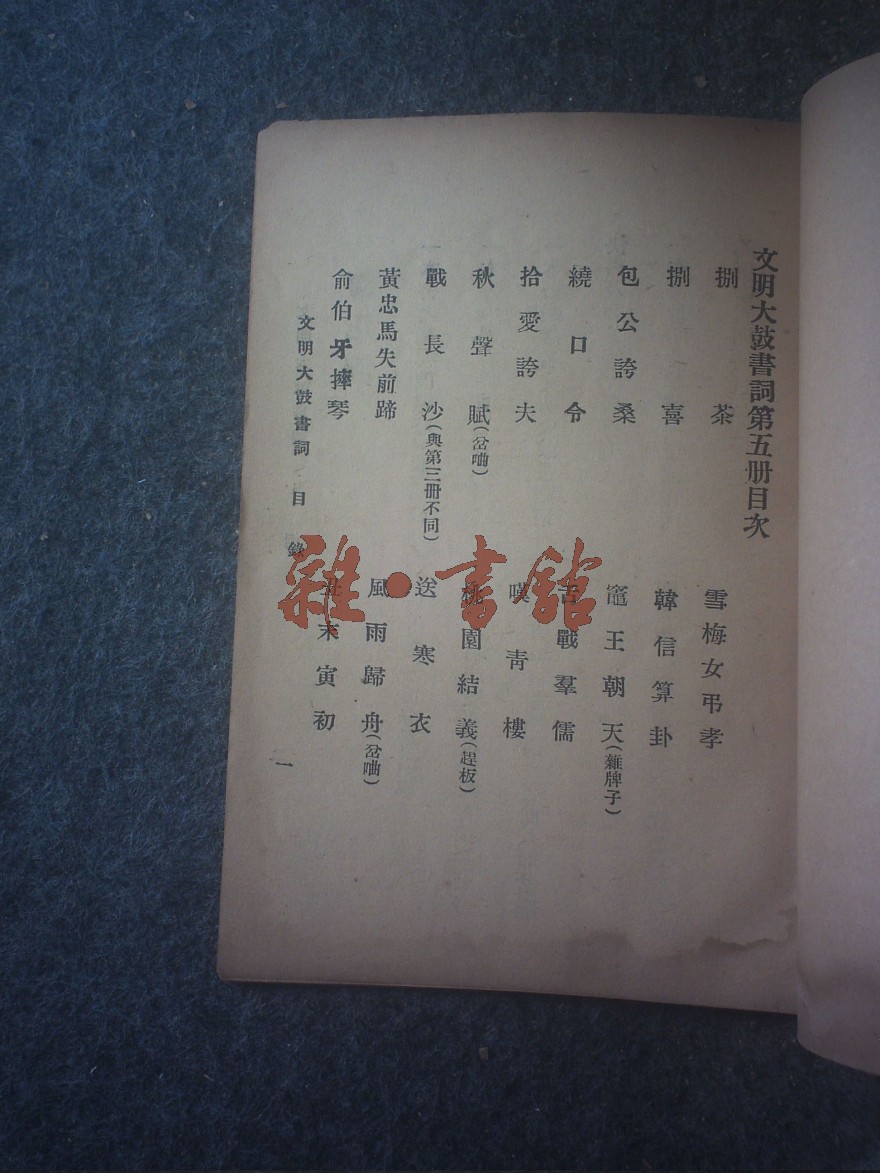 文明大鼓書詞第五册目次
捌茶
雪梅女弔孝
捌喜
韓信算卦
包公誇桑
竈王朝天(雜牌子)
繞口令
舌戰羣儒
拾愛誇夫
嘆青樓
秋聲賦(岔曲)
桃園結義(趕板)
戰長沙(與第三册不同)
送寒衣
黃忠馬失前蹄
風雨歸舟(岔曲)
俞伯牙摔琴
丑末寅初
文明大鼓書詞 目錄
一
雜·書館